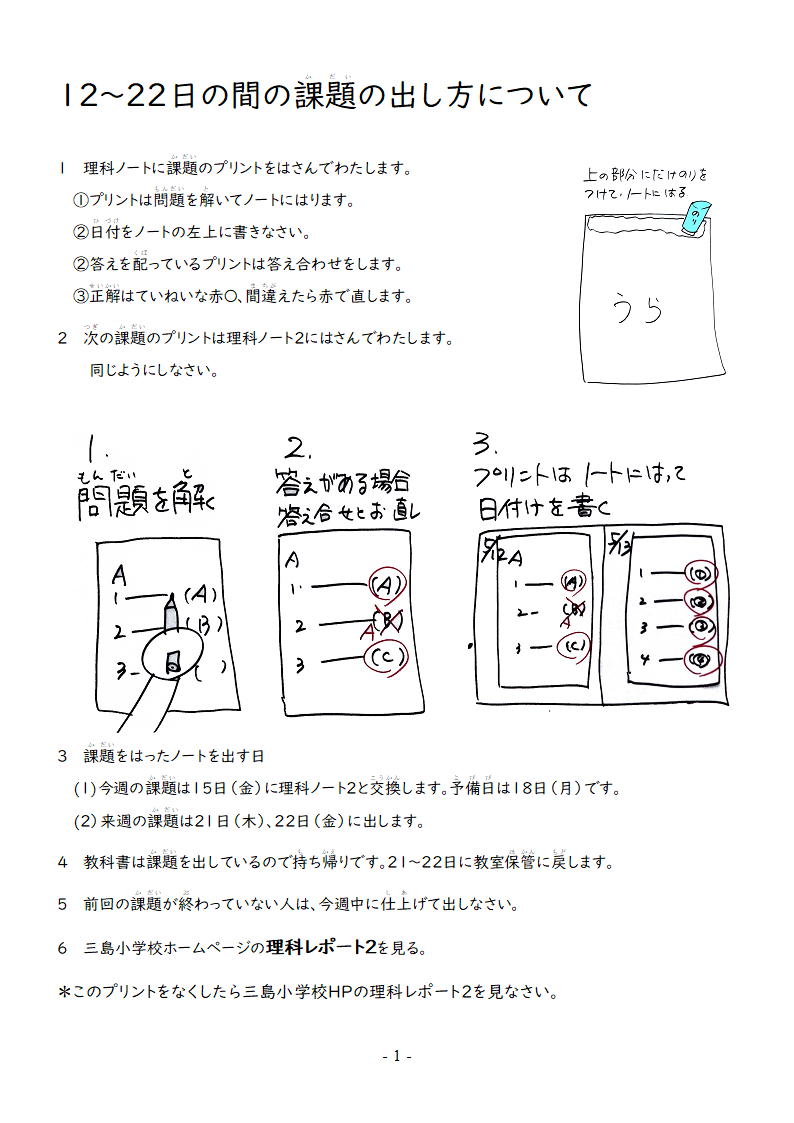 12～22日の間の課題の出し方について
1　理科ノートに課題のプリントをはさんでわたします。
①プリントは問題を解いてノートにはります。
②日付をノートの左上に書きなさい。
②答えを配っているプリントは答え合わせをします。
③正解はていねいな赤○、間違えたら赤で直します。
2　次の課題のプリントは理科ノート2にはさんでわたします。
同じようにしなさい。
上の部分にだけのりを
つけて、ノートにはる
のり
うら
1.
問題を解く
A
1 (A)
2 (B)
3 ( )
2.
答えがある場合
答え合せとお直し
A
1 (A)
2 (B)
A
3 (C)
3.
プリントは ノートにはって
日付けを書く
5/12
A
1 (A)
2 (B)
A
3 (C)
5/13
1
2
3
4
3　課題をはったノートを出す日
(1)今週の課題は15日（金）に理科ノート2と交換します。予備日は18日（月）です。
(2)来週の課題は21日（木）、22日（金）に出します。
4　教科書は課題を出しているので持ち帰りです。21～22日に教室保管に戻します。
5　前回の課題が終わっていない人は、今週中に仕上げて出しなさい。
6　三島小学校ホームページの理科レポート2を見る。
＊このプリントをなくしたら三島小学校HPの理科レポート2を見なさい。
- 1 -